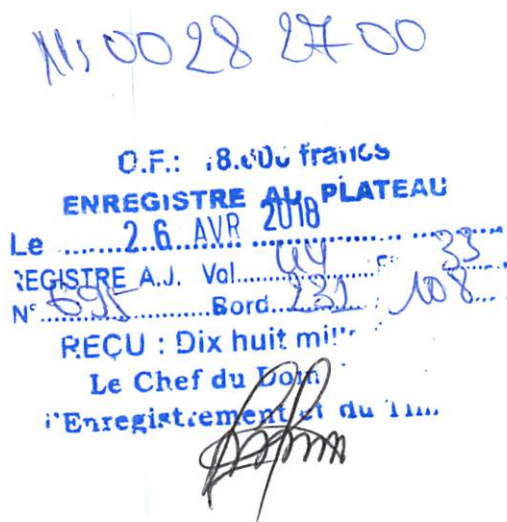 00 28 27 00
O.F.: 18.000 francs
ENREGISTRE AU PLATEAU
Le ....... 2 6 AVR 2018 ...................
REGISTRE A.J. Vol. 44 F° 33
N° 695 Bord. 231 / 108
REÇU : Dix huit mille
Le Chef du Dom
l'Enregistrement et du Tim